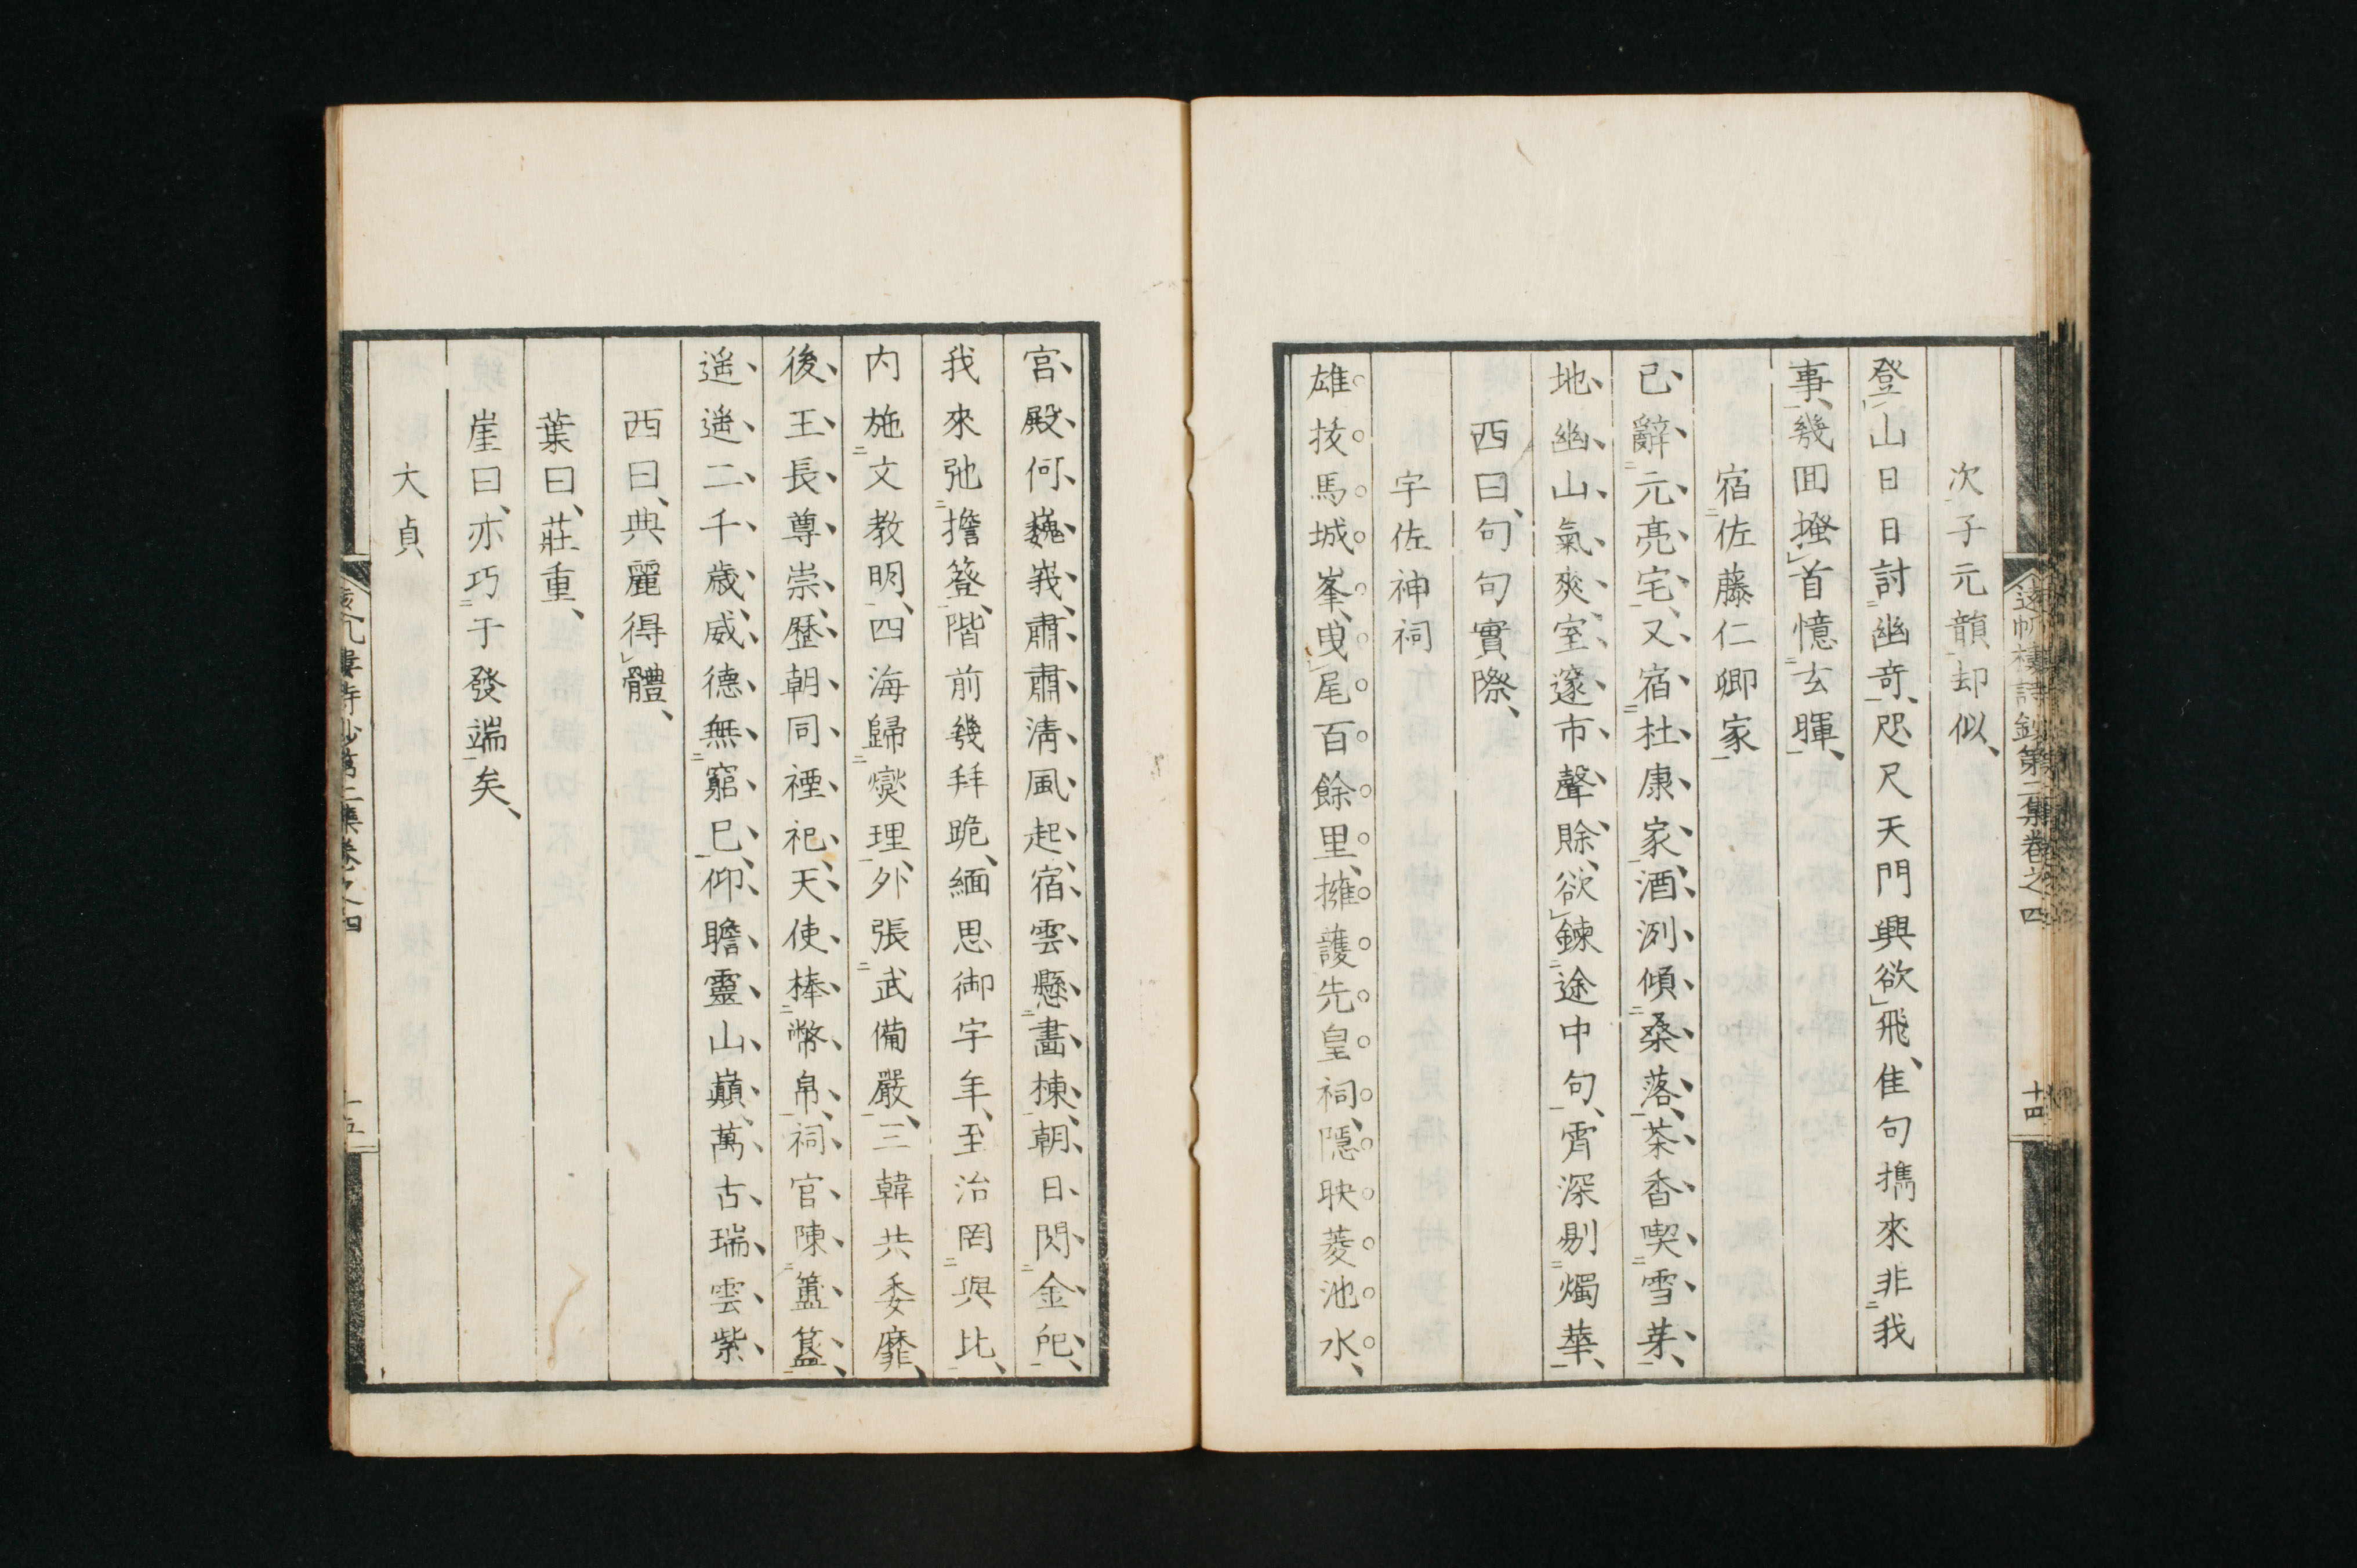 遠帆樓詩鈔第二集卷之四
十四
次子元韻却似、
登山日日討幽奇、咫尺天門興欲飛、隹句攜來非我
事、幾囬搔首憶玄暉、
宿佐藤仁卿家
已辭元亮宅、又宿杜康家、酒洌傾桑落、茶香喫雪芽、
地幽山氣爽、室邃市聲賖、欲鍊途中句、霄深剔燭華、
西曰、句句實際、
宇佐神祠
雄抜馬城峯、曳尾百餘里、擁護先皇祠、隱映菱池水、
宮殿何巍峩、肅肅淸風起、宿雲懸畵棟、朝日閃金戺、
我來弛擔簦、階前幾拜跪、緬思御宇年、至治罔與比、
内施文教明、四海歸爕理、外張武備嚴、三韓共委靡、
後王長尊崇、歷朝同禋祀、天使棒幣帛、祠官陳簠簋、
遥遥二千歳、威德無窮已、仰瞻靈山巓、萬古瑞雲紫
西曰、典麗得體、
葉曰、莊重、
崖曰、亦巧于發端矣、
大貞
樓詩鈔第二集卷之四
十五